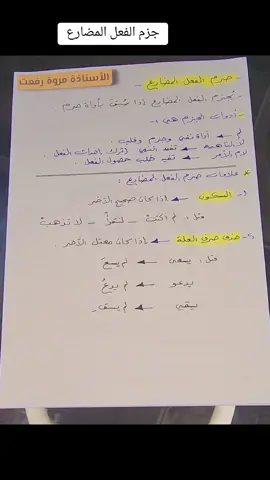 جزم الفعل المضارع
الأستاذة مروة رفعت
- جزم الفعل المضارع -
- يُجزم الفعل المضارع إذا سُبق بأداة جزم
- أدوات الجزم هي :-
لم ← أداة نفي وجزم وقلب.
لا الناهية ← تفيد النهي (ترك إتيان الفعل.
لام الأمر ← تفيد طلب حصول الفعل.
* علامات جزم الفعل المضارع :
١- السكون ← إذا كان صحيح الآخر
مثل: لم أكتبْ - لتقرأْ - لا تذهبْ
٢- حذف حرف العلة ← إذا كان معتل الآخر.
مثل: يسعى ← لم يسعَ
يدعو ← لم يدعُ
← لم